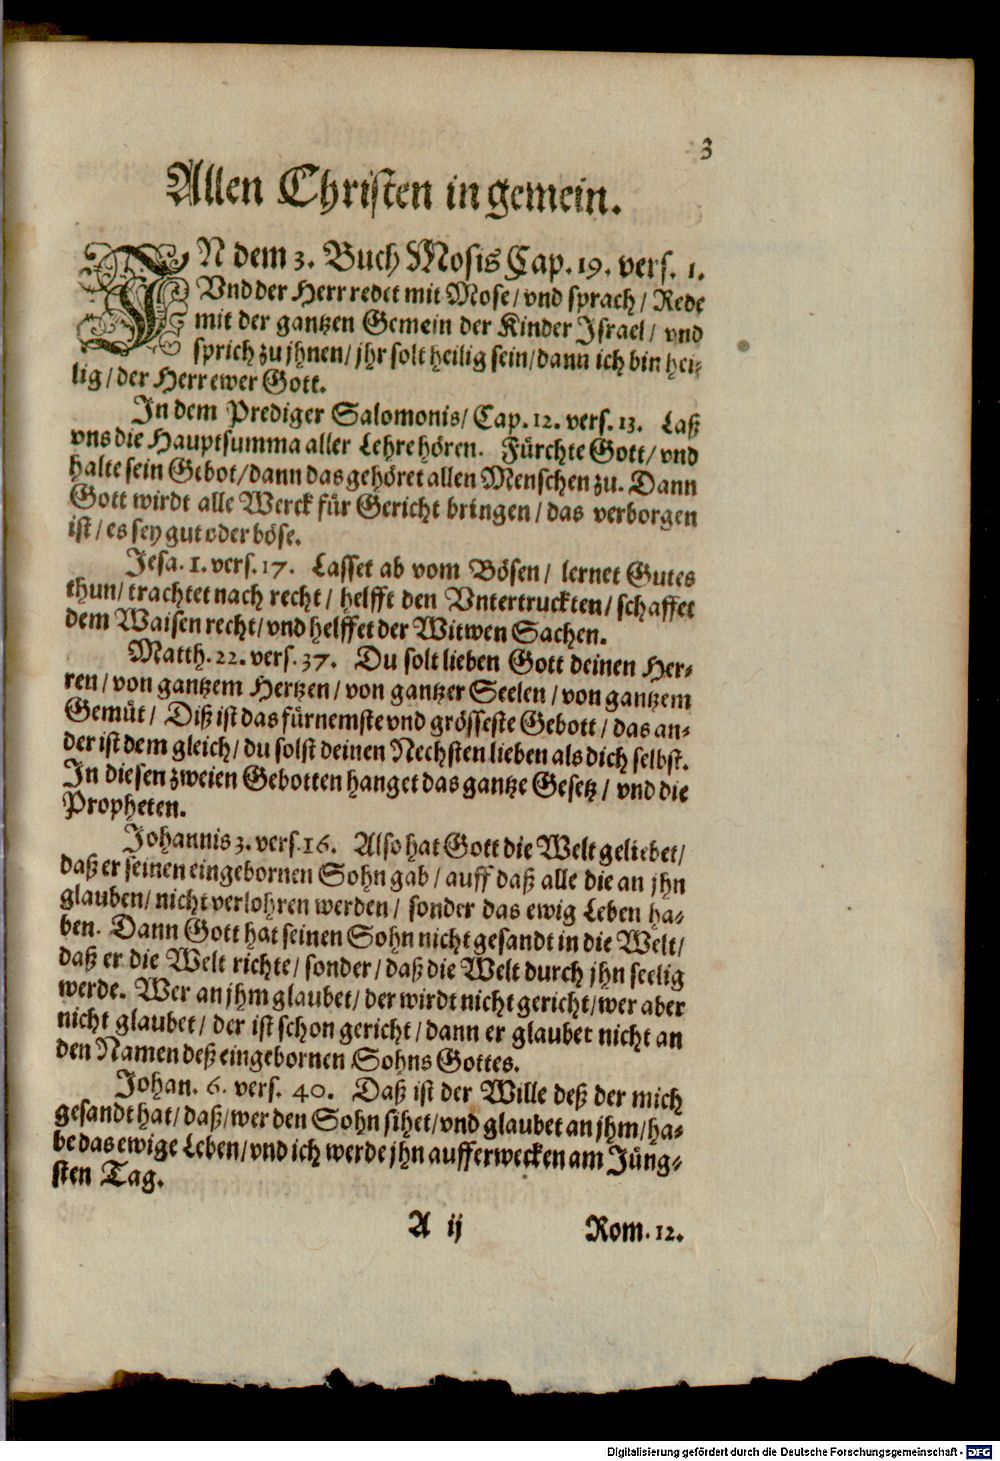 3
Allen Christen in gemein.
IN dem 3. Buch Mosis Cap. 19. vers. 1.
Vnd der Herr redet mit Mose / vnd sprach / Rede
mit der gantzen Gemein der Kinder Jsrael / vnd
sprich zu jhnen / jhr solt heilig sein / dann ich bin hei-
lig / der Herr ewer Gott.
In dem Prediger Salomonis / Cap. 12. vers. 13. Laß
vns die Hauptsumma aller Lehre hören. Fürchte Gott / vnd
halte sein Gebot / dann das gehöret allen Menschen zu. Dann
Gott wirdt alle Werck für Gericht bringen / das verborgen
ist / es sey gut oder böse.
Jesa. 1. vers. 17. Lasset ab vom Bösen / lernet Gutes
thun / trachtet nach recht / helfft den Vntertruckten / schaffet
dem Waisen recht / vnd helffet der Witwen Sachen.
Matth. 22. vers. 37. Du solt lieben Gott deinen Her-
ren / von gantzem Hertzen / von gantzer Seelen / von gantzem
Gemüt / Diß ist das fürnemste vnd grösseste Gebott / das an-
der ist dem gleich / du solst deinen Nechsten lieben als dich selbst.
In diesen zweien Gebotten hanget das gantze Gesetz / vnd die
Propheten.
Johannis 3. vers. 16. Also hat Gott die Welt geliebet /
daß er seinen eingebornen Sohn gab / auff daß alle die an jhn
glauben / nicht verlohren werden / sonder das ewig Leben ha-
ben. Dann Gott hat seinen Sohn nicht gesandt in die Welt /
daß er die Welt richte / sonder / daß die Welt durch jhn seelig
werde. Wer an jhm glaubet / der wirdt nicht gericht / wer aber
nicht glaubet / der ist schon gericht / dann er glaubet nicht an
den Namen deß eingebornen Sohns Gottes.
Johan. 6. vers. 40. Daß ist der Wille deß der mich
gesandt hat / daß / wer den Sohn sihet / vnd glaubet an jhm / ha-
be das ewige Leben / vnd ich werde jhn aufferwecken am Jüng-
sten Tag.
A ij Rom. 12.
Digitalisierung gefördert durch die Deutsche Forschungsgemeinschaft - DFG